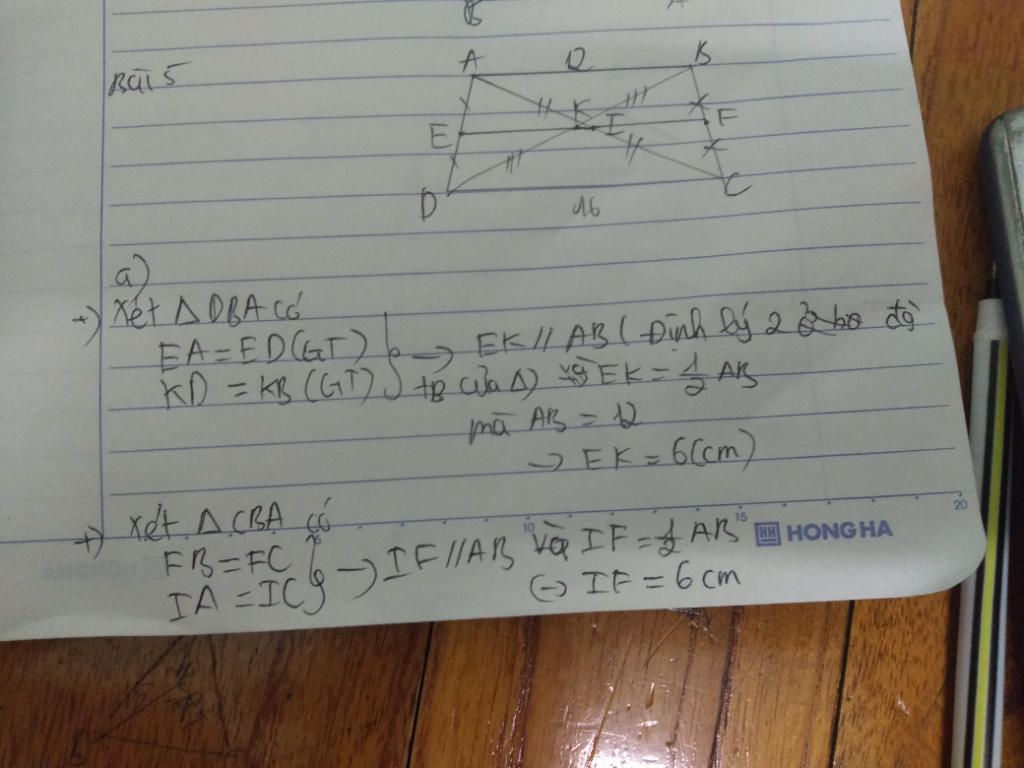 B A
Bài 5
A 12 B
E K I F
D 16 C
a)
+) Xét Δ DBA có
EA = ED (GT) } → EK // AB ( Định lý 2 về đg
KD = KB (GT) tB của Δ) và EK = 1/2 AB
mà AB = 12
→ EK = 6 (cm)
+) Xét Δ CBA có
FB = FC } → IF // AB và IF = 1/2 AB
IA = IC (→ IF = 6 cm
10 15 20
HH HONG HA